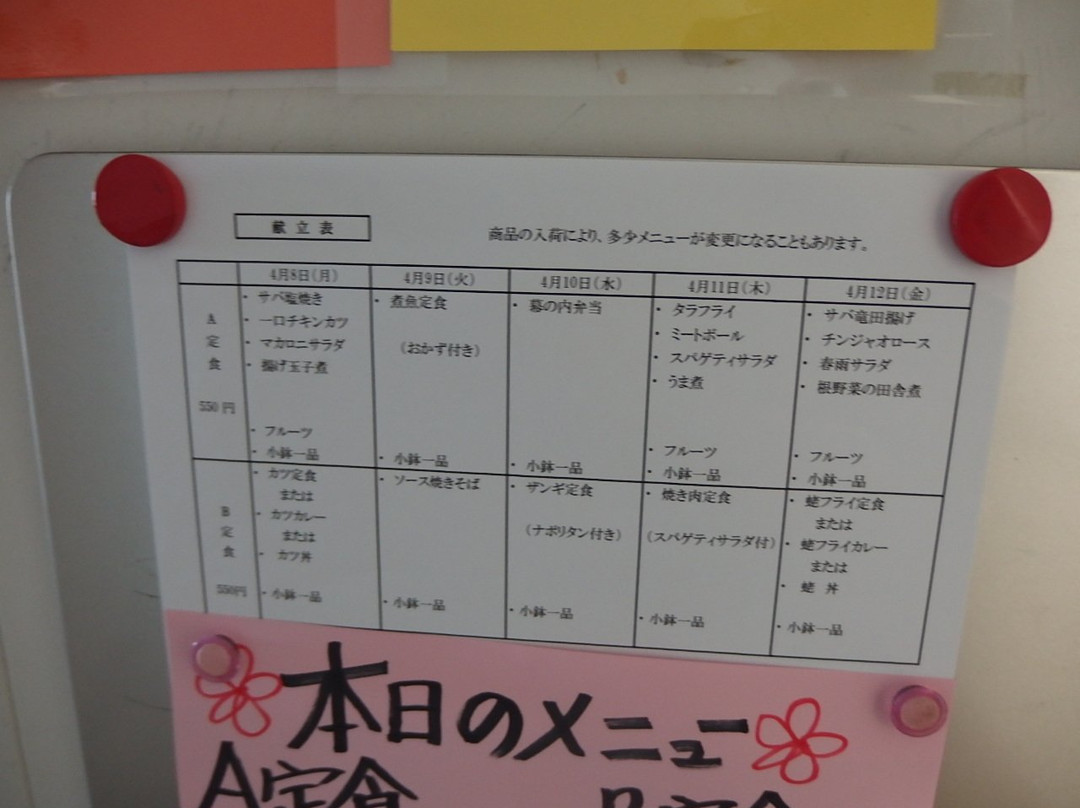 献立表
商品の入荷により、多少メニューが変更になることもあります。
4月8日(月) 4月9日(火) 4月10日(水) 4月11日(木) 4月12日(金)
A定食 550円
・サバ塩焼き
・一口チキンカツ
・マカロニサラダ
・揚げ玉子煮
・フルーツ
・小鉢一品
・煮魚定食
(おかず付き)
・小鉢一品
・幕の内弁当
・小鉢一品
・タラフライ
・ミートボール
・スパゲティサラダ
・うま煮
・フルーツ
・小鉢一品
・サバ竜田揚げ
・チンジャオロース
・春雨サラダ
・根野菜の田舎煮
・フルーツ
・小鉢一品
B定食 550円
・カツ定食
または
・カツカレー
または
・カツ丼
・小鉢一品
・ソース焼きそば
・小鉢一品
・ザンギ定食
(ナポリタン付き)
・小鉢一品
・焼き肉定食
(スパゲティサラダ付)
・小鉢一品
・蛯フライ定食
または
・蛯フライカレー
または
・蛯丼
・小鉢一品
本日のメニュー
A定食 B定食